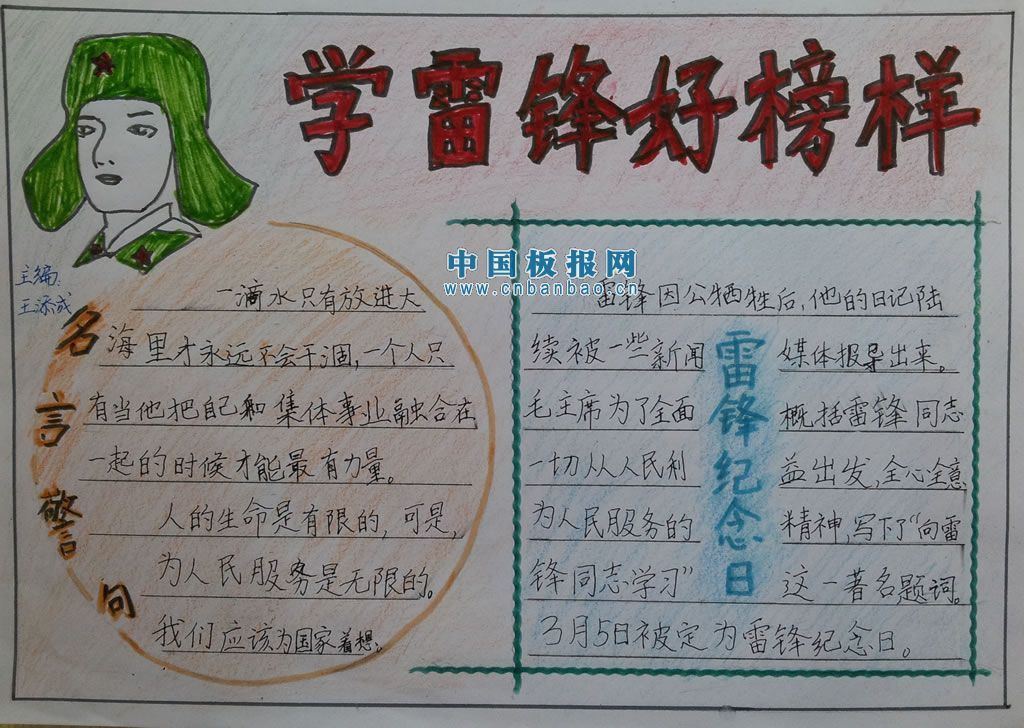 学雷锋好榜样
中国板报网
www.cnbanbao.cn
主编:
王添成
名言警句
一滴水只有放进大
海里才永远不会干涸,一个人只
有当他把自己和集体事业融合在
一起的时候才能最有力量。
人的生命是有限的,可是,
为人民服务是无限的。
我们应该为国家着想。
雷锋纪念日
雷锋因公牺牲后,他的日记陆
续被一些新闻媒体报导出来。
毛主席为了全面概括雷锋同志
一切从人民利益出发,全心全意
为人民服务的精神,写下了“向雷
锋同志学习”这一著名题词。
3月5日被定为雷锋纪念日。